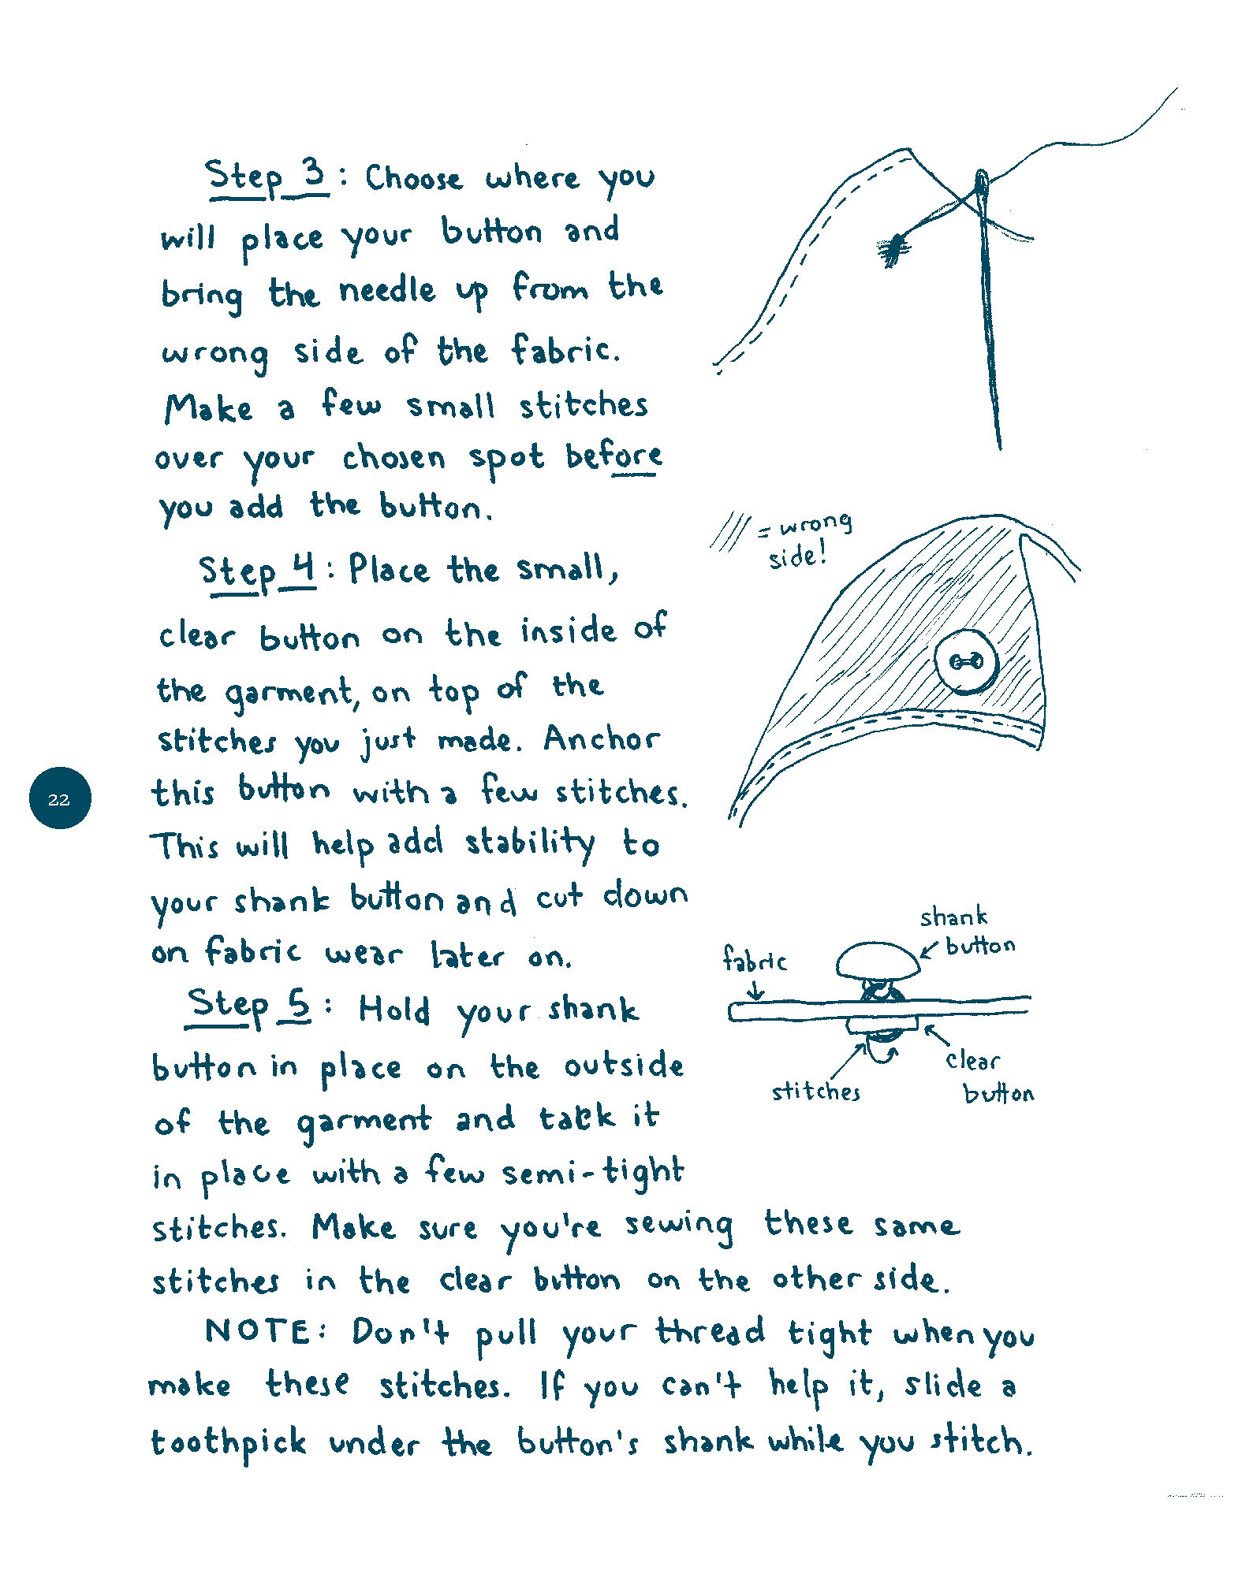 Step 3: Choose where you
will place your button and
bring the needle up from the
wrong side of the fabric.
Make a few small stitches
over your chosen spot before
you add the button.
/// = wrong
side!
Step 4: Place the small,
clear button on the inside of
the garment, on top of the
stitches you just made. Anchor
this button with a few stitches.
This will help add stability to
your shank button and cut down
on fabric wear later on.
shank
button
fabric
clear
button
stitches
Step 5: Hold your shank
button in place on the outside
of the garment and tack it
in place with a few semi-tight
stitches. Make sure you're sewing these same
stitches in the clear button on the other side.
NOTE: Don't pull your thread tight when you
make these stitches. If you can't help it, slide a
toothpick under the button's shank while you stitch.
22